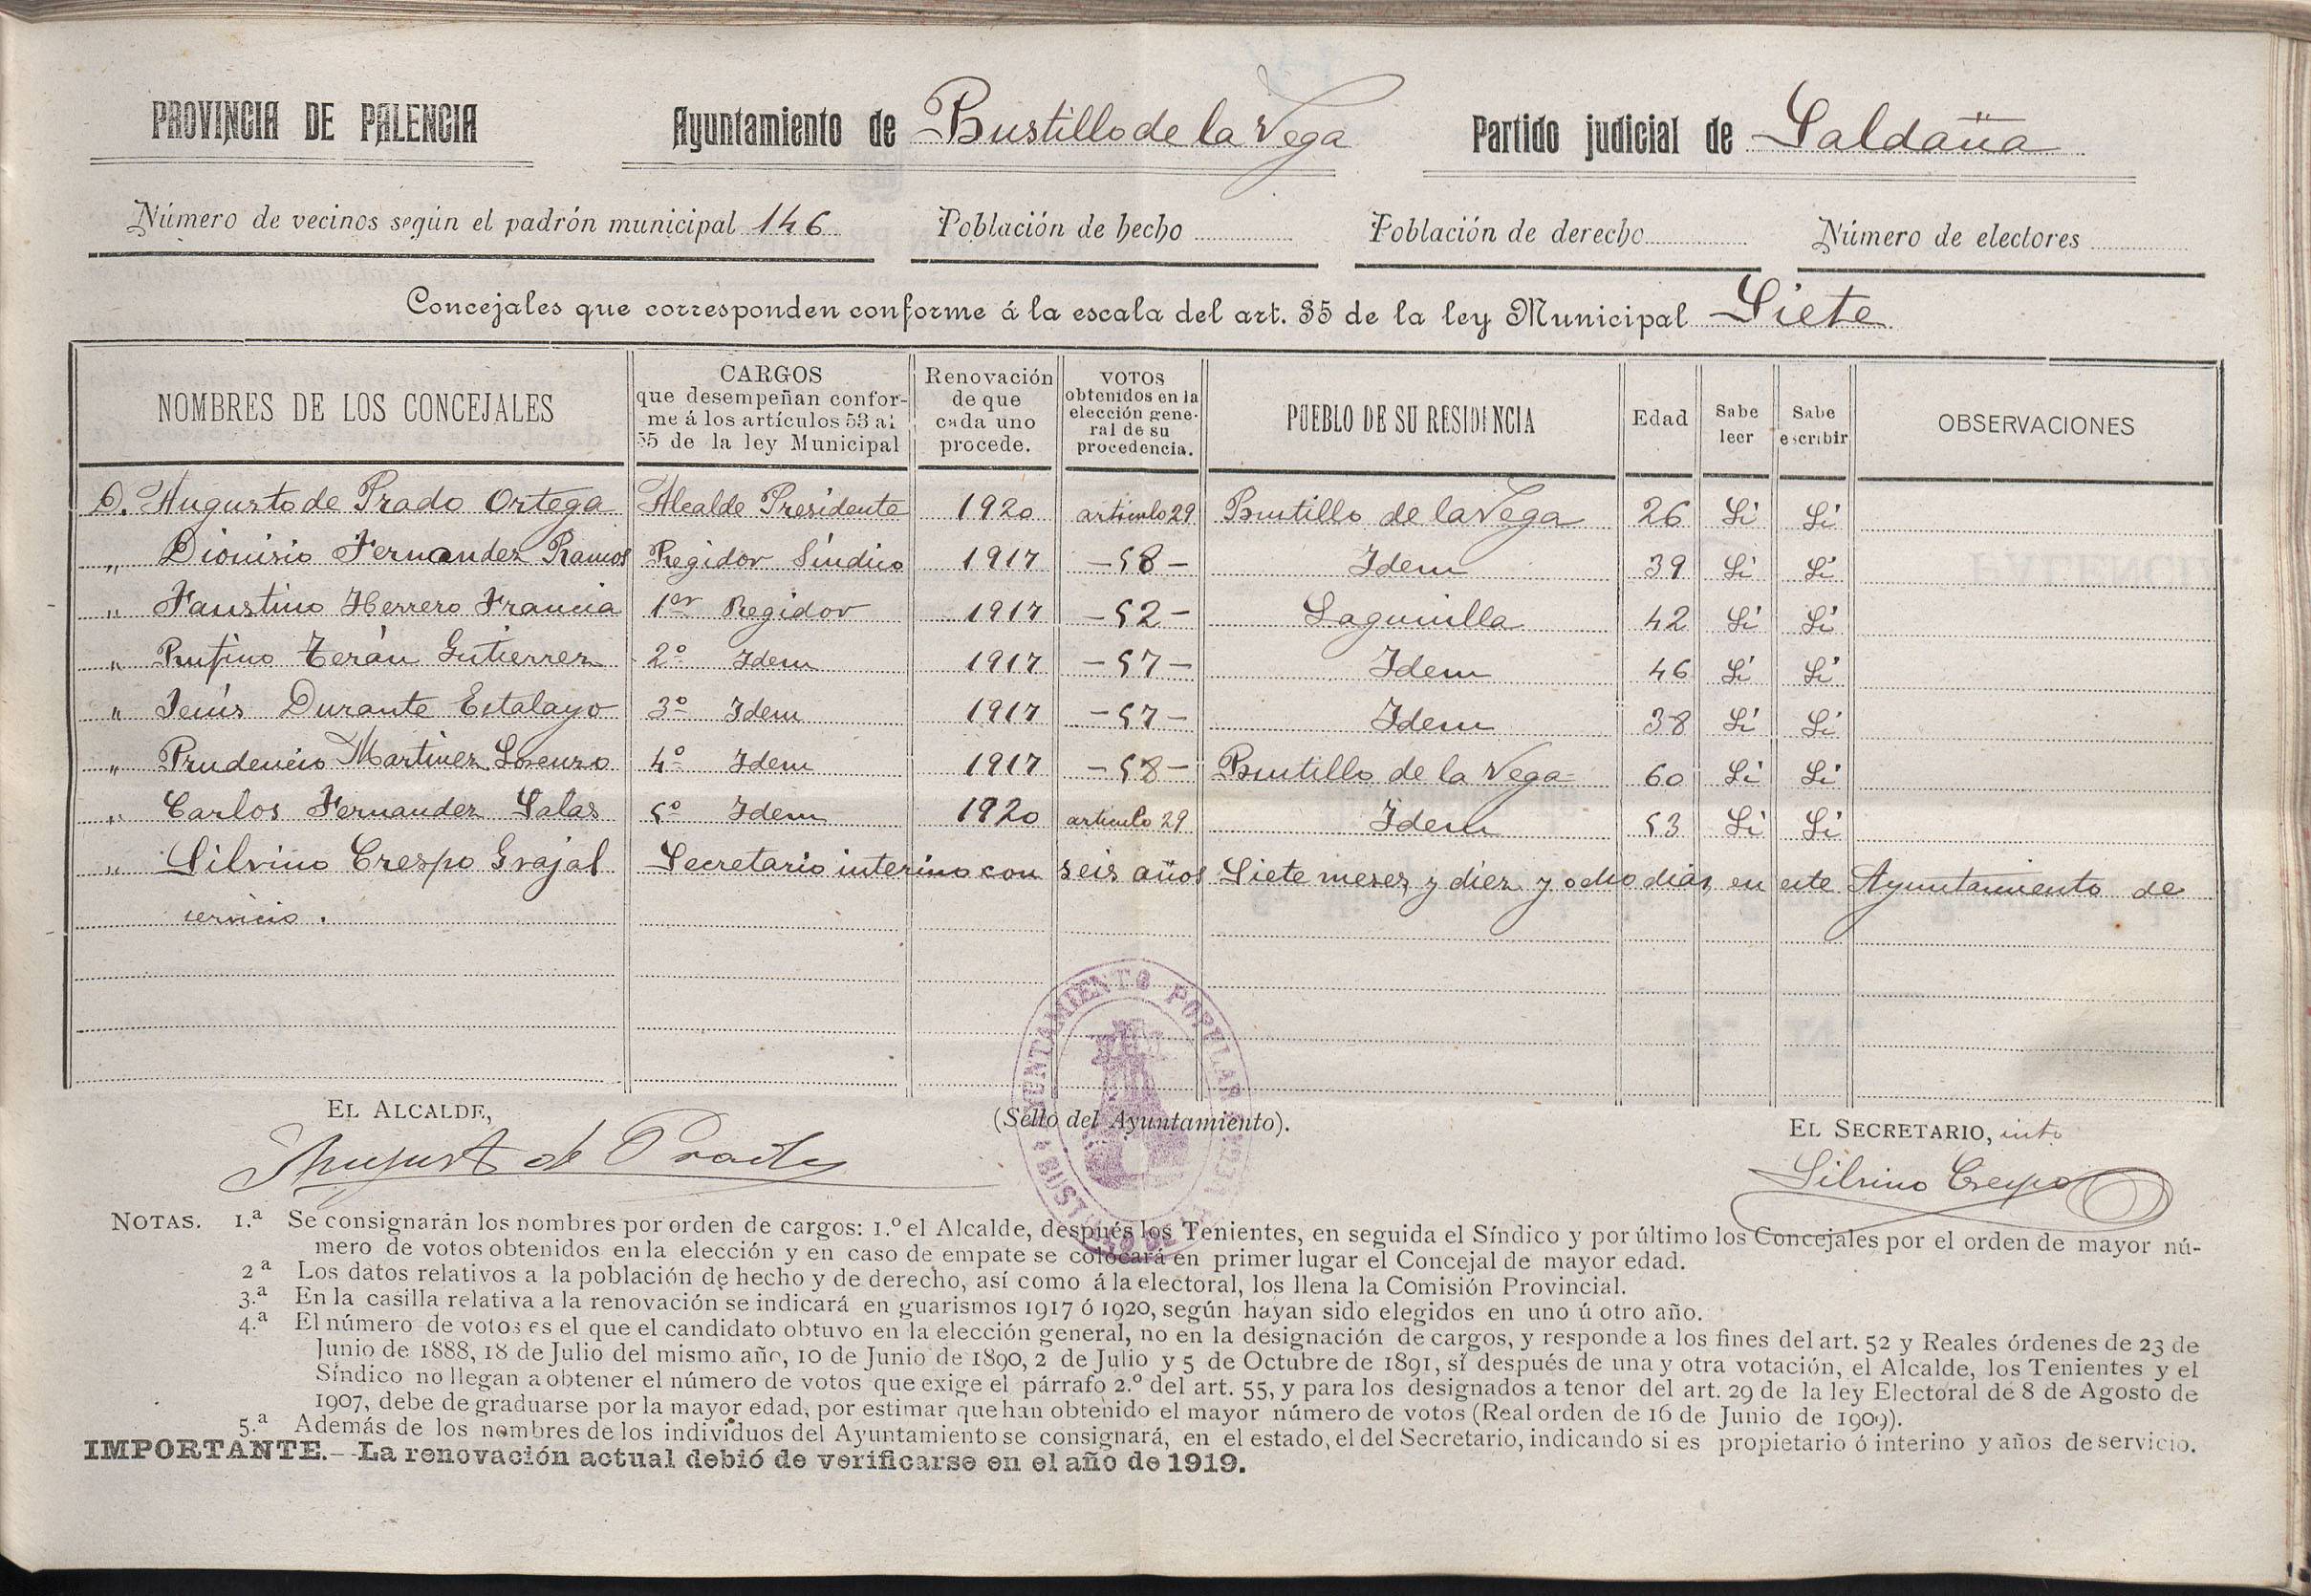 PROVINCIA DE PALENCIA Ayuntamiento de Bustillo de la Vega Partido judicial de Saldaña
Número de vecinos según el padrón municipal 146 Población de hecho Población de derecho Número de electores
Concejales que corresponden conforme á la escala del art. 35 de la ley Municipal Siete
NOMBRES DE LOS CONCEJALES
CARGOS
que desempeñan confor-
me á los artículos 53 al
55 de la ley Municipal
Renovación
de que
cada uno
procede.
VOTOS
obtenidos en la
elección gene-
ral de su
procedencia.
PUEBLO DE SU RESIDENCIA
Edad
Sabe
leer
Sabe
escribir
OBSERVACIONES
D. Augusto de Prado Ortega Alcalde Presidente 1920 articulo 29 Bustillo de la Vega 26 Si Si
„ Dionisio Fernandez Ramos Regidor Sindico 1917 –58– Idem 39 Si Si
„ Faustino Herrero Francia 1er Regidor 1917 –52– Lagunilla 42 Si Si
„ Rufino Terán Gutierrez 2º Idem 1917 –57– Idem 46 Si Si
„ Jesús Durante Estalayo 3º Idem 1917 –57– Idem 38 Si Si
„ Prudencio Martinez Lorenzo 4º Idem 1917 –58– Bustillo de la Vega 60 Si Si
„ Carlos Fernandez Salas 5º Idem 1920 articulo 29 Idem 53 Si Si
„ Silvino Crespo Grajal Secretario interino con seis años Siete meses y diez y ocho dias en este Ayuntamiento de
servicio.
AYUNTAMIENTO POPULAR
BUSTILLO DE LA VEGA
EL ALCALDE,
(Sello del Ayuntamiento).
EL SECRETARIO, into
Augusto de Prado
Silvino Crespo
NOTAS. 1.ª Se consignarán los nombres por orden de cargos: 1.º el Alcalde, después los Tenientes, en seguida el Síndico y por último los Concejales por el orden de mayor nú-
mero de votos obtenidos en la elección y en caso de empate se colocará en primer lugar el Concejal de mayor edad.
2ª Los datos relativos a la población de hecho y de derecho, así como á la electoral, los llena la Comisión Provincial.
3.ª En la casilla relativa a la renovación se indicará en guarismos 1917 ó 1920, según hayan sido elegidos en uno ú otro año.
4.ª El número de votos es el que el candidato obtuvo en la elección general, no en la designación de cargos, y responde a los fines del art. 52 y Reales órdenes de 23 de
Junio de 1888, 18 de Julio del mismo año, 10 de Junio de 1890, 2 de Julio y 5 de Octubre de 1891, sí después de una y otra votación, el Alcalde, los Tenientes y el
Síndico no llegan a obtener el número de votos que exige el párrafo 2.º del art. 55, y para los designados a tenor del art. 29 de la ley Electoral de 8 de Agosto de
1907, debe de graduarse por la mayor edad, por estimar que han obtenido el mayor número de votos (Real orden de 16 de Junio de 1909).
5.ª Además de los nombres de los individuos del Ayuntamiento se consignará, en el estado, el del Secretario, indicando si es propietario ó interino y años de servicio.
IMPORTANTE.—La renovación actual debió de verificarse en el año de 1919.